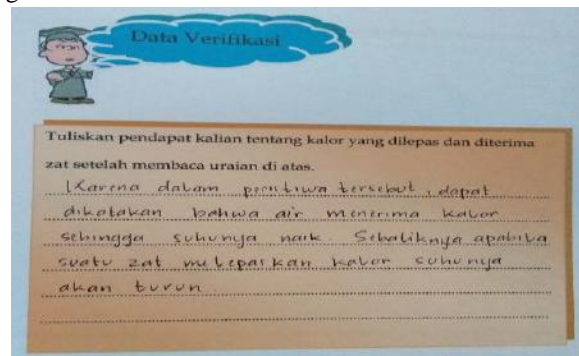 Data Verifikasi
Tuliskan pendapat kalian tentang kalor yang dilepas dan diterima
zat setelah membaca uraian di atas.
Karena dalam peristiwa tersebut, dapat
dikatakan bahwa air menerima kalor
sehingga suhunya naik. Sebaliknya apabila
suatu zat melepaskan kalor suhunya
akan turun.